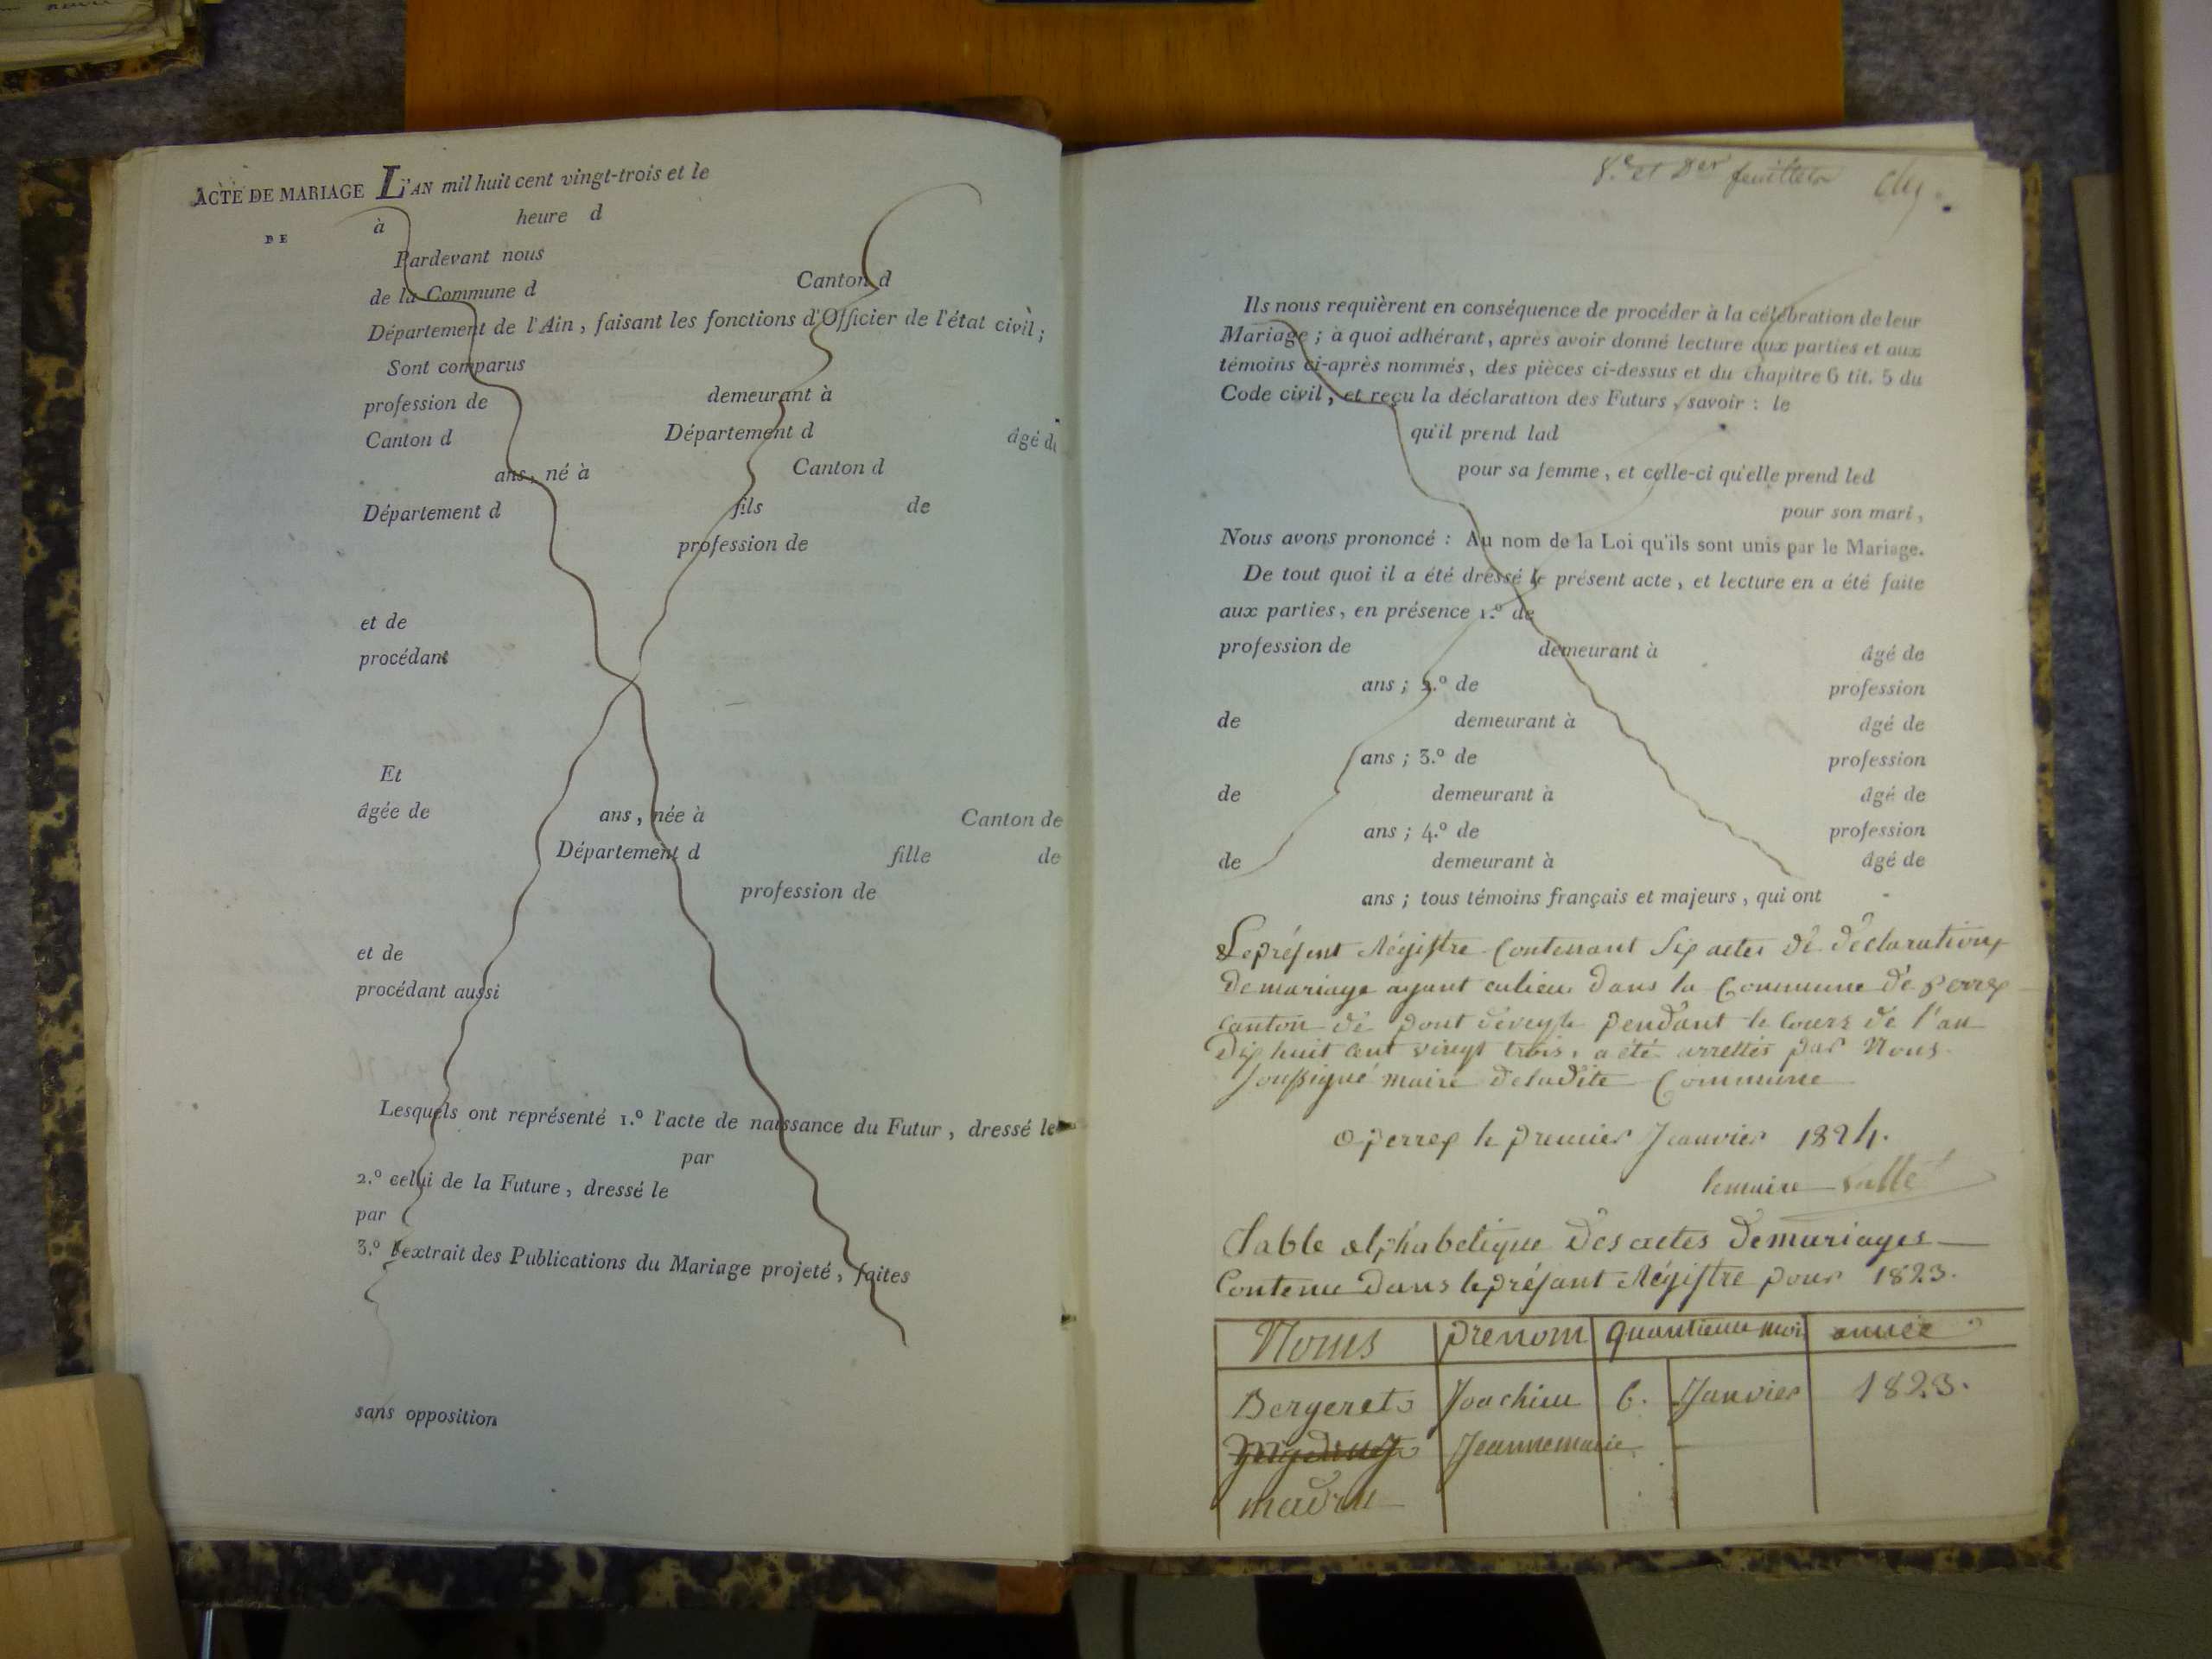 ACTE DE MARIAGE
DE
L'AN mil huit cent vingt-trois et le
à heure d
Pardevant nous
de la Commune d Canton d
Département de l'Ain, faisant les fonctions d'Officier de l'état civil;
Sont comparus
profession de demeurant à
Canton d Département d âgé de
ans, né à Canton d
Département d fils de
profession de
et de
procédant
Et
âgée de ans, née à Canton de
Département d fille de
profession de
et de
procédant aussi
Lesquels ont représenté 1.º l'acte de naissance du Futur, dressé le
par
2.º celui de la Future, dressé le
par
3.º l'extrait des Publications du Mariage projeté, faites
sans opposition
8.e et Der feuillet
Ils nous requièrent en conséquence de procéder à la célébration de leur
Mariage; à quoi adhérant, après avoir donné lecture aux parties et aux
témoins ci-après nommés, des pièces ci-dessus et du chapitre 6 tit. 5 du
Code civil, et reçu la déclaration des Futurs, savoir : le
qu'il prend lad
pour sa femme, et celle-ci qu'elle prend led
pour son mari,
Nous avons prononcé : Au nom de la Loi qu'ils sont unis par le Mariage.
De tout quoi il a été dressé le présent acte, et lecture en a été faite
aux parties, en présence 1.º de
profession de demeurant à âgé de
ans; 2.º de profession
de demeurant à âgé de
ans; 3.º de profession
de demeurant à âgé de
ans; 4.º de profession
de demeurant à âgé de
ans; tous témoins français et majeurs, qui ont
Le présent Régistre Contenant Six actes de déclarations
de mariage ayant eu lieu dans la Commune de perrex
Canton de pont deveyle pendant le cours de l'an
Dix huit cent vingt trois, a été arrettés par Nous
Soussigné maire de ladite Commune
a perrex le premier Janvier 1824.
le maire
Table alphabetique Des actes de mariages
Contenu Dans le présant Régistre pour 1823.
Noms prenom quantieme moi année
Bergeret Joachim 6. Janvier 1823.
Jeannemarie